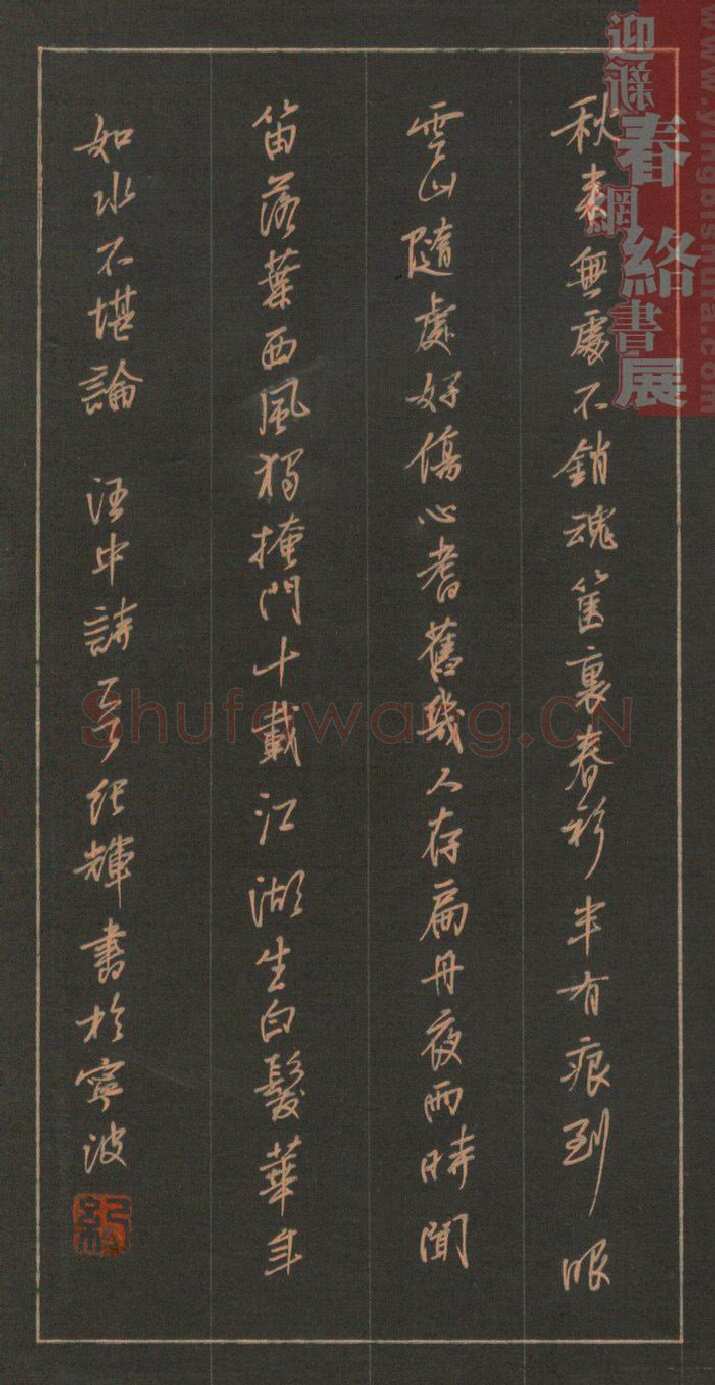 秋來無處不銷魂篋裏春衫半有痕到眼
雲山隨處好傷心耆舊幾人存扁舟夜雨時聞
笛落葉西風獨掩門十載江湖生白髮華年
如水不堪論 汪中詩一首紀輝書於寧波
迎新春網絡書展
www.yingbishufa.com
Shufawang.CN